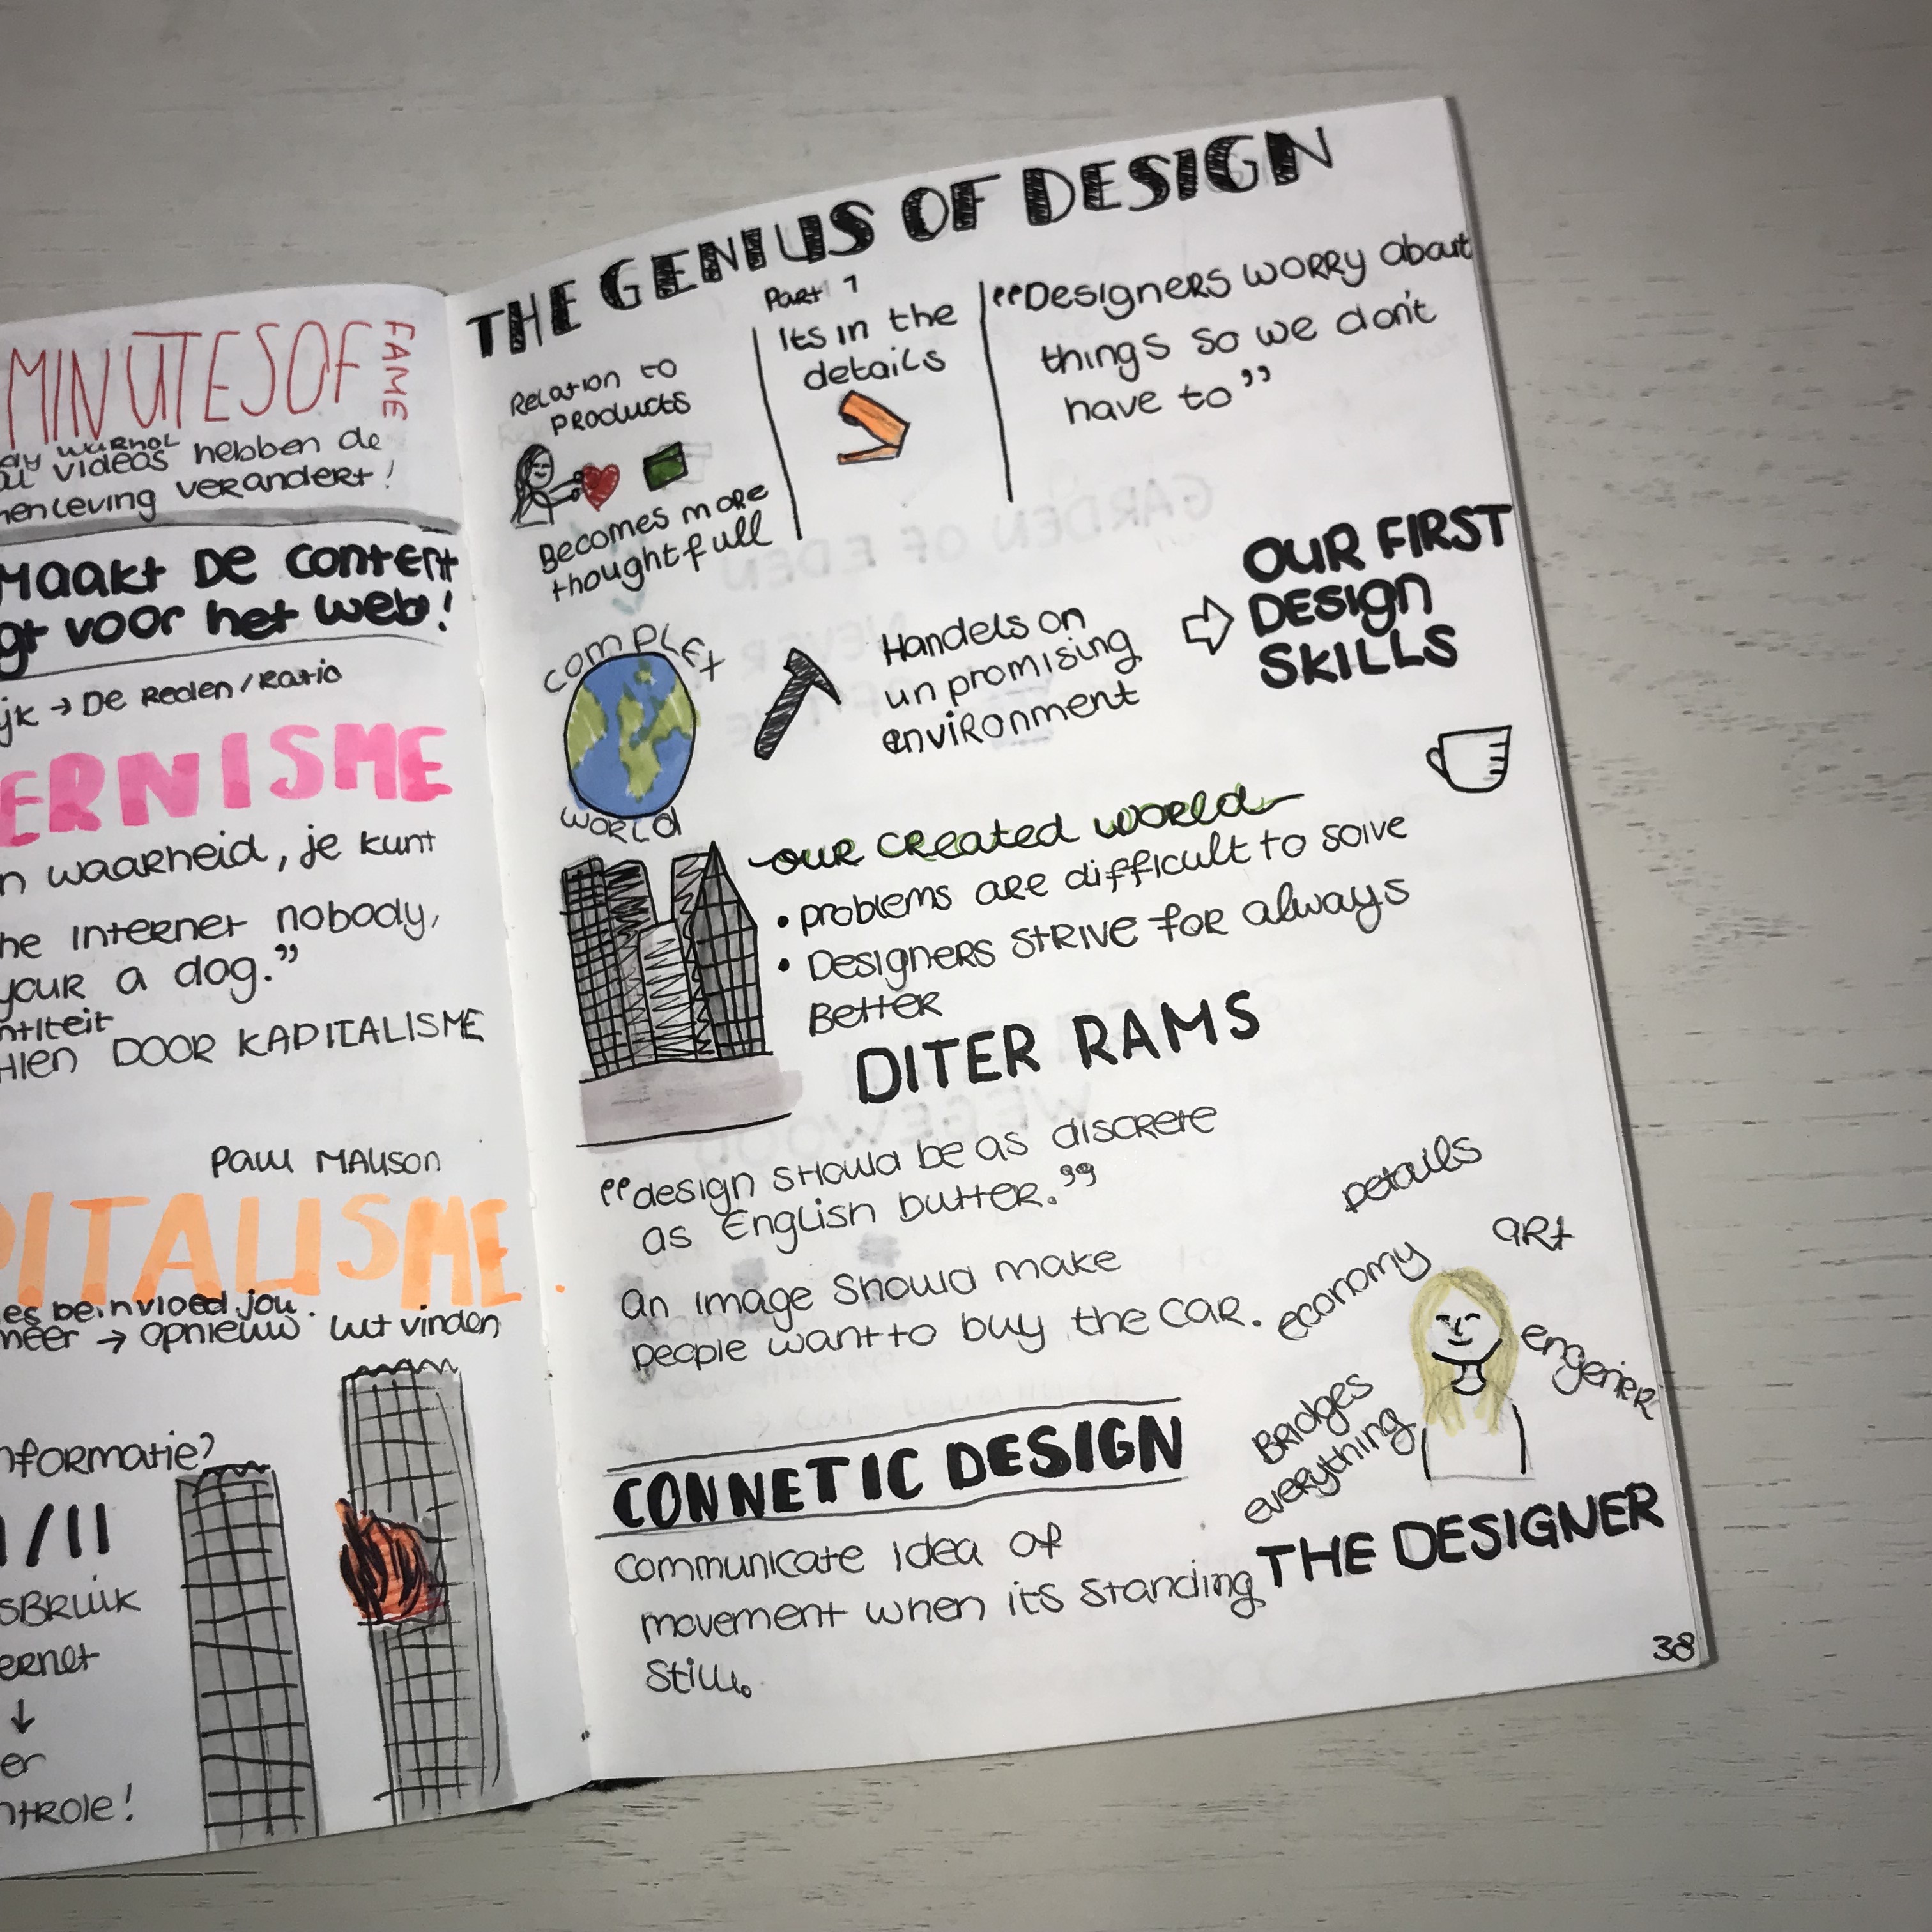 MINUTES OF FAME
warhol
videos hebben de
enleving verandert!
Maakt De content
gt voor het web!
ijk → De Reden/Ratio
ERNISME
n waarheid, je kunt
he Internet nobody,
your a dog.”
ntiteit
Hien DOOR KAPITALISME
Paul MAuson
PITALISME
es beinvloed jou.
meer → opnieuw uit vinden
nformatie?
1/11
sBRUIK
ernet
↓
er
ntrole!
THE GENIUS OF DESIGN
Part 1
Relation to
products
Becomes more
thoughtfull
Its in the
details
“Designers worry about
things so we don't
have to”
complex
world
Handels on
un promising
environment
⇨ OUR FIRST
DESIGN
SKILLS
our created world
• problems are difficult to solve
• Designers strive for always
Better
DITER RAMS
“design should be as discrete
as English butter.”
An image should make
people want to buy the car.
Details
art
economy
engenier
Bridges
everything
THE DESIGNER
CONNETIC DESIGN
Communicate idea of
movement when its standing
still.
38